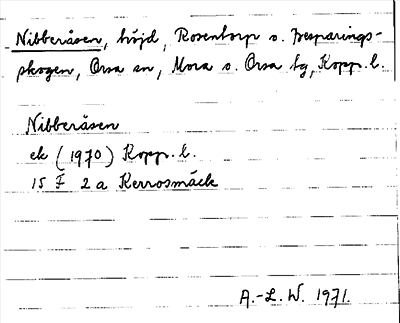 Nibberåsen, höjd, Rosentorp o. Besparings-
skogen, Orsa sn, Mora o. Orsa tg, Kopp. l.
Nibberåsen
ek (1970) Kopp. l.
15 F 2 a Kerrosmäck
A.-L. W. 1971.